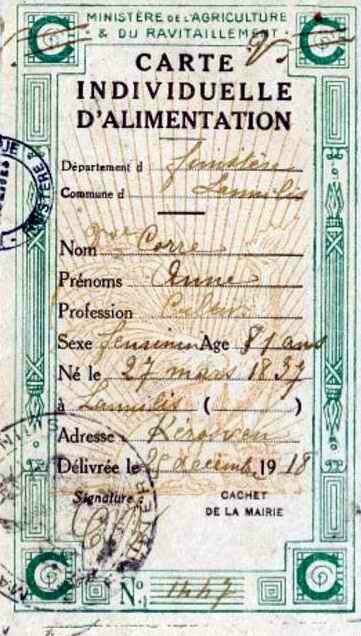 MINISTÈRE DE L'AGRICULTURE
& DU RAVITAILLEMENT
C C
CARTE
INDIVIDUELLE
D'ALIMENTATION
Département d finistère
Commune d Lannilis
Nom Corre
Prénoms Anne
Profession
Sexe féminin Age 81 ans
Né le 27 mars 1837
à Lannilis ( )
Adresse
Délivrée le 26 décembre 1918
Signature :
CACHET
DE LA MAIRIE
C C
No 1447